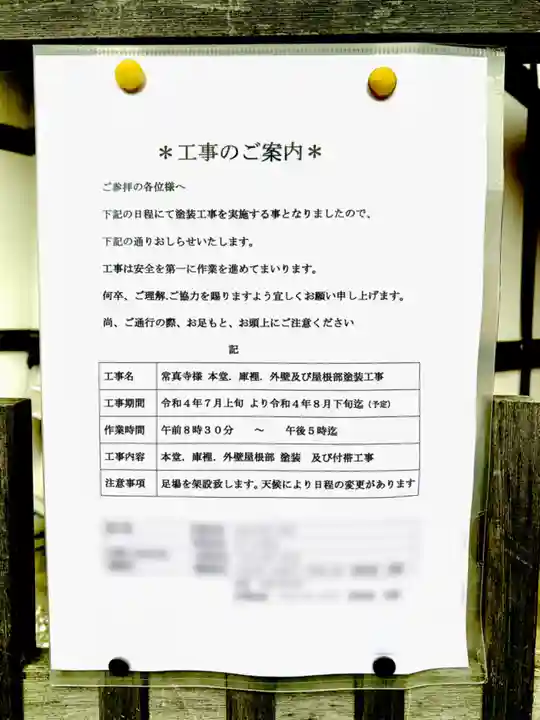 ＊工事のご案内＊
ご参拝の各位様へ
下記の日程にて塗装工事を実施する事となりましたので、
下記の通りおしらせいたします。
工事は安全を第一に作業を進めてまいります。
何卒、ご理解.ご協力を賜りますよう宜しくお願い申し上げます。
尚、ご通行の際、お足もと、お頭上にご注意ください
記
工事名 常真寺様 本堂．庫裡．外壁及び屋根部塗装工事
工事期間 令和４年７月上旬 より令和４年８月下旬迄（予定）
作業時間 午前８時３０分 ～ 午後５時迄
工事内容 本堂．庫裡．外壁屋根部 塗装 及び付帯工事
注意事項 足場を架設致します。天候により日程の変更があります